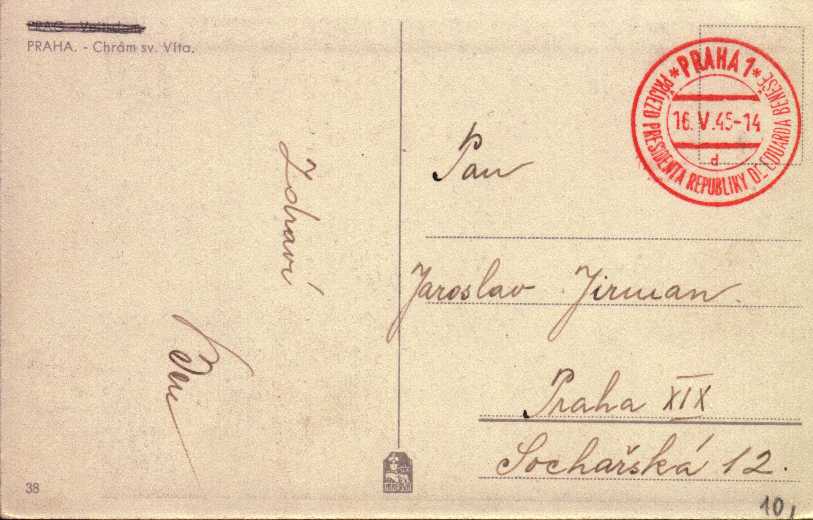 PRAHA. - Chrám sv. Víta.
* PRAHA 1 *
PŘÍJEZD PRESIDENTA REPUBLIKY Dr. EDUARDA BENEŠE
16. V. 45-14
d
Zdraví
Pan
Jaroslav Jirman.
Praha XIX
Sochařská 12.
38
10,